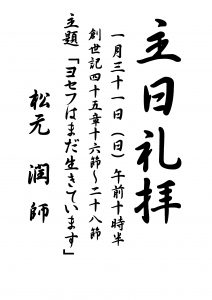 主日礼拝
一月三十一日（日）午前十時半
創世記四十五章十六節～二十八節
主題「ヨセフはまだ生きています」
松元　潤師